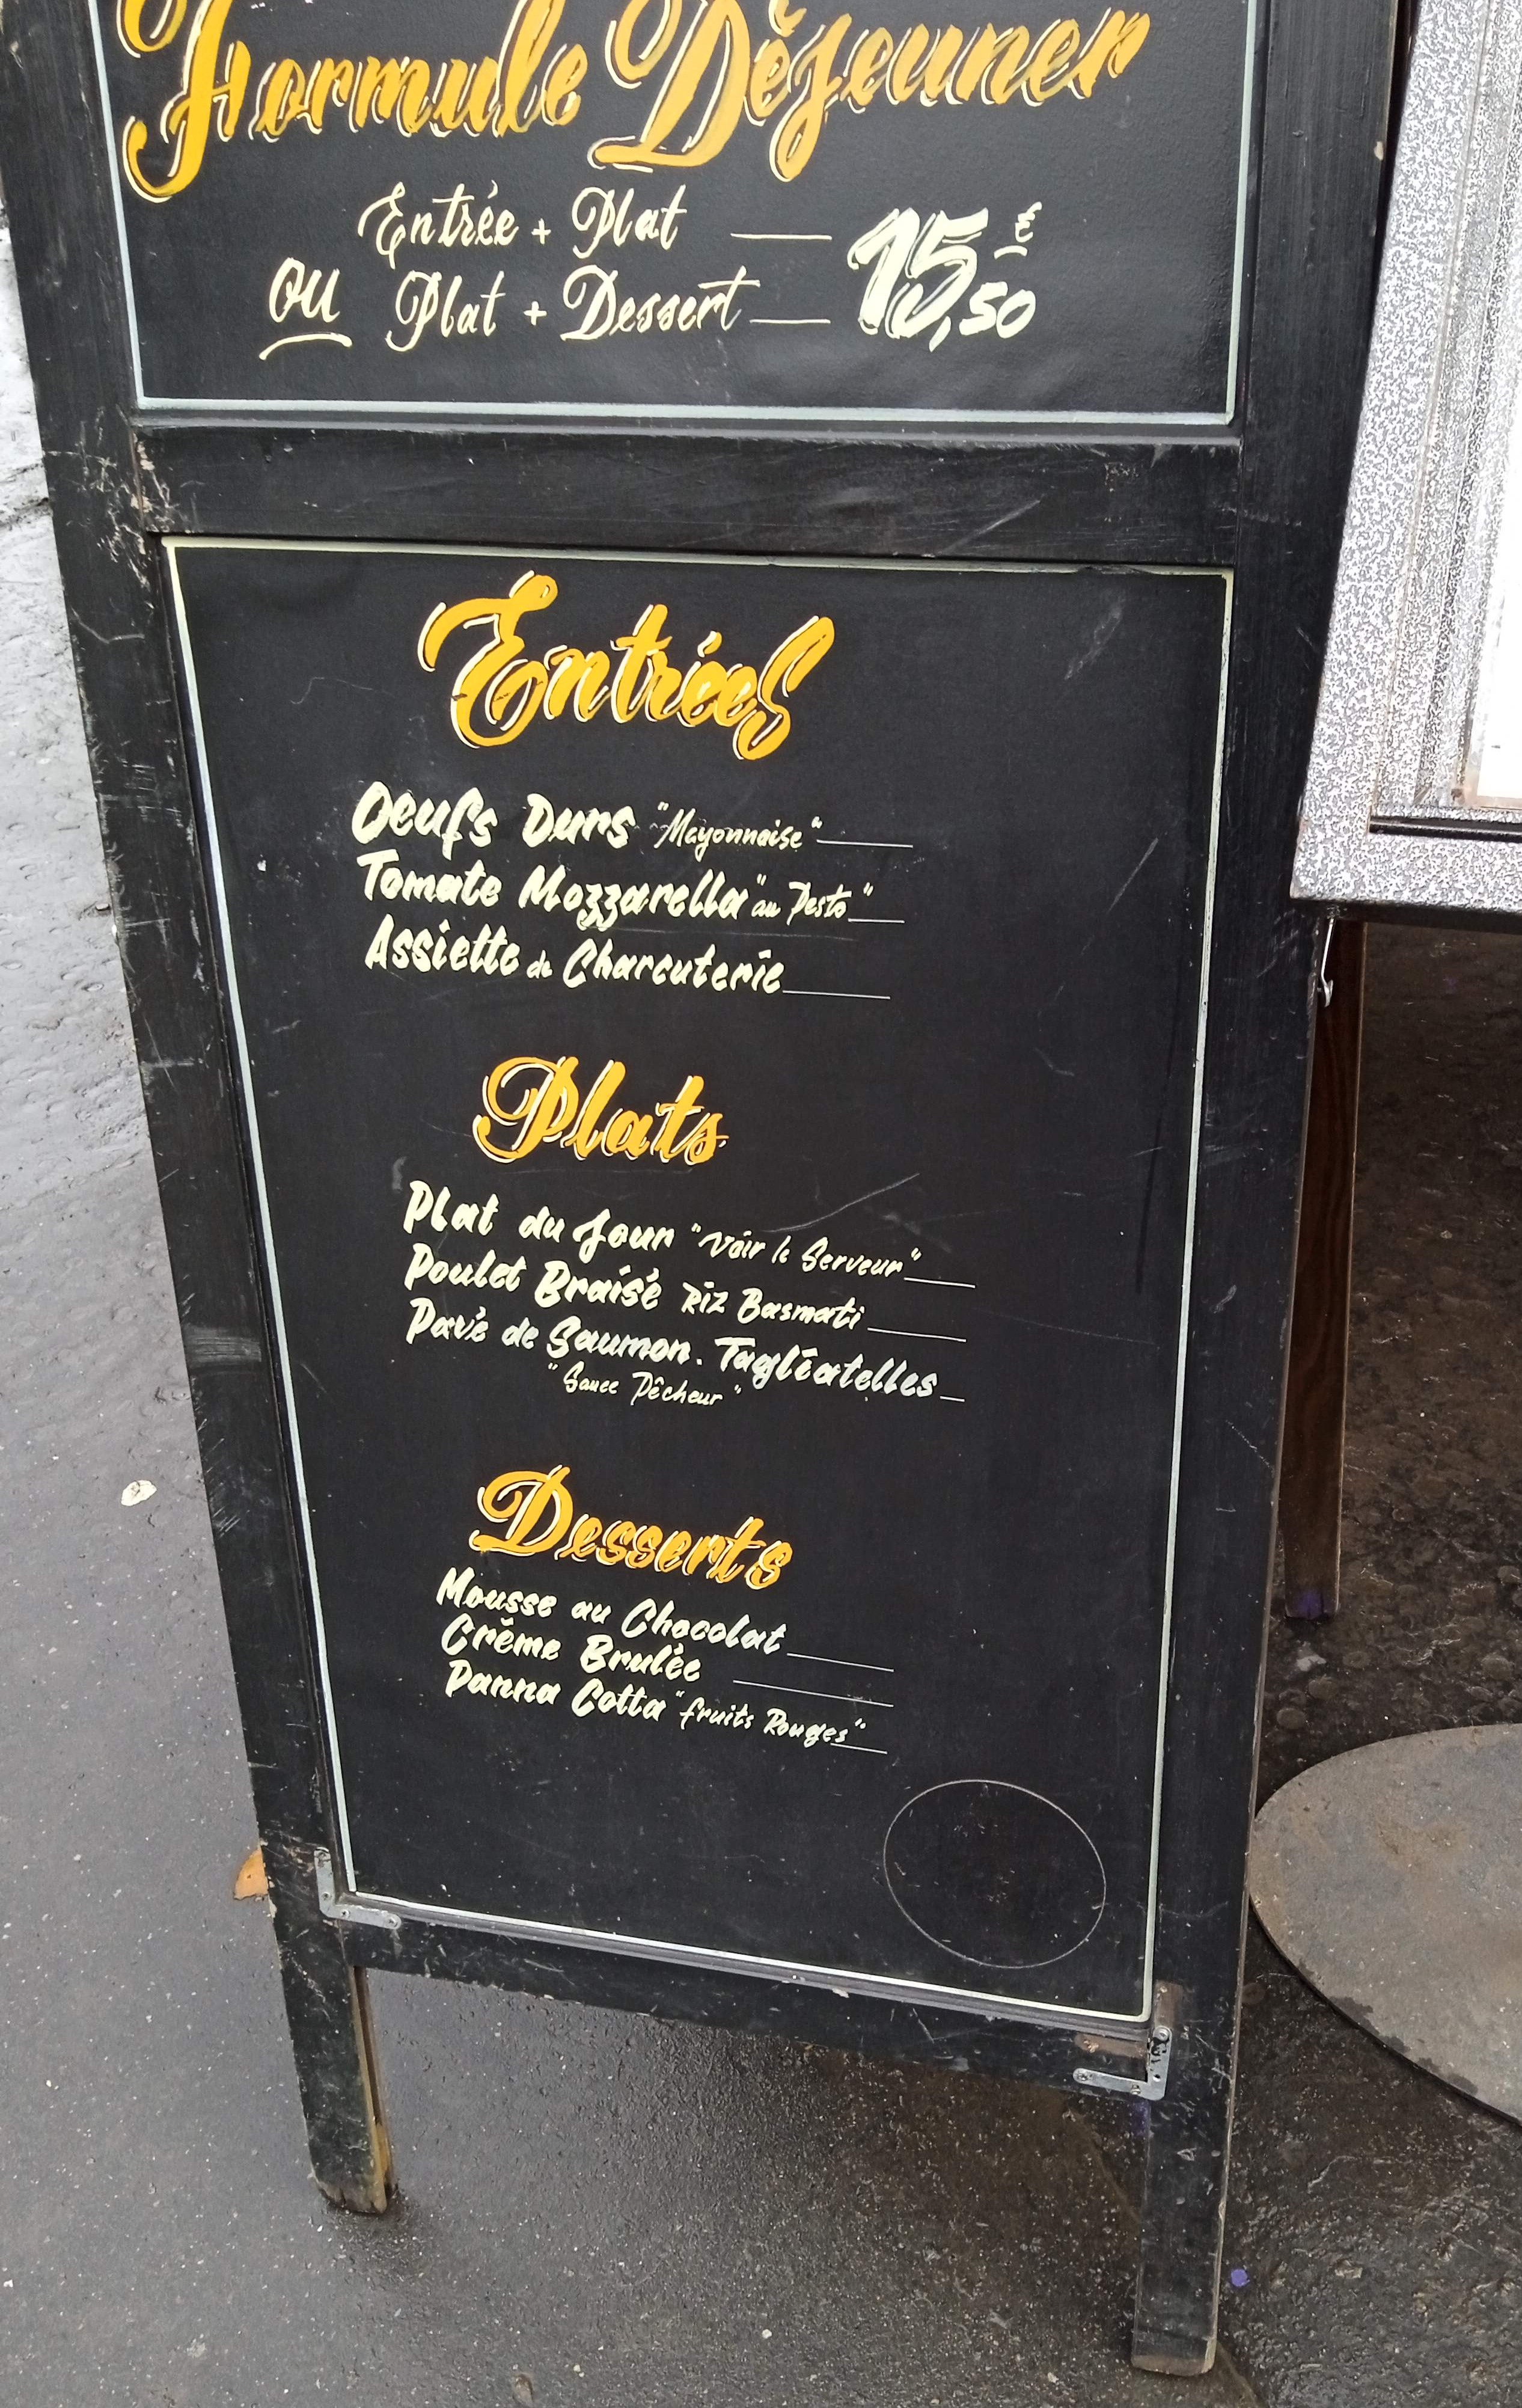 Formule Déjeuner
Entrée + Plat
OU Plat + Dessert
15€,50
Entrées
Oeufs Durs "Mayonnaise"
Tomate Mozzarella "au Pesto"
Assiette de Charcuterie
Plats
Plat du Jour "Voir le Serveur"
Poulet Braisé Riz Basmati
Pavé de Saumon. Tagliatelles
"Sauce Pêcheur"
Desserts
Mousse au Chocolat
Crème Brulée
Panna Cotta "fruits Rouges"